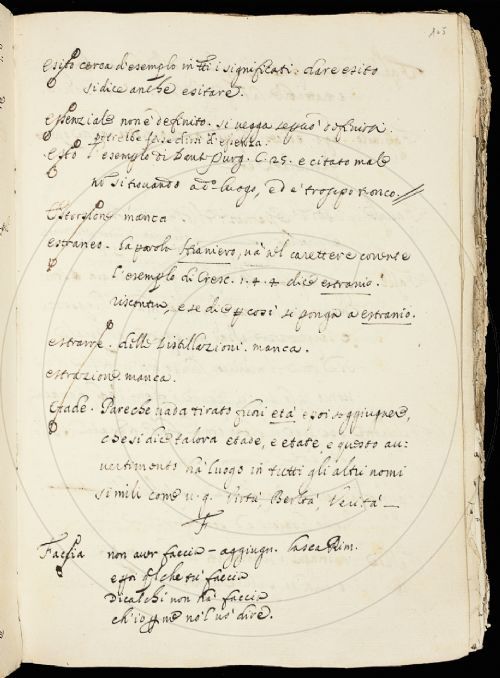 esito cerca d'esemplo in tti i significati: dare esito
si dice anche esitare.
essenziale non è definito. si vegga se può definirsi.
potrebbe forse dirsi d'essenza.
esto l'esemplo di Dant. Purg. C. 25. è citato male
si trovando a do luogo, ed è troppo ronco.
Estorsione manca.
estraneo. la parola straniero, và nel carattere corrente
l'esemplo di Cresc. 1. 4. 4. dice estranio.
riscontri, e se dice così si ponga a estranio.
estrarre. delle Distillazioni. manca.
estrazione manca.
Etade. Pare che vada tirato fuori età e poi soggiugnere,
che si dice talora etade, e etate, e questo au:
uertimento hà luogo in tutti gli altri nomi
simili come v. g. Virtù, Beltà, Verità —
F
Faccia non aver faccia — aggiugn. Lasca Rim.
che tu faccia
dica chi non hà faccia
ch'io me no'l vò dire.